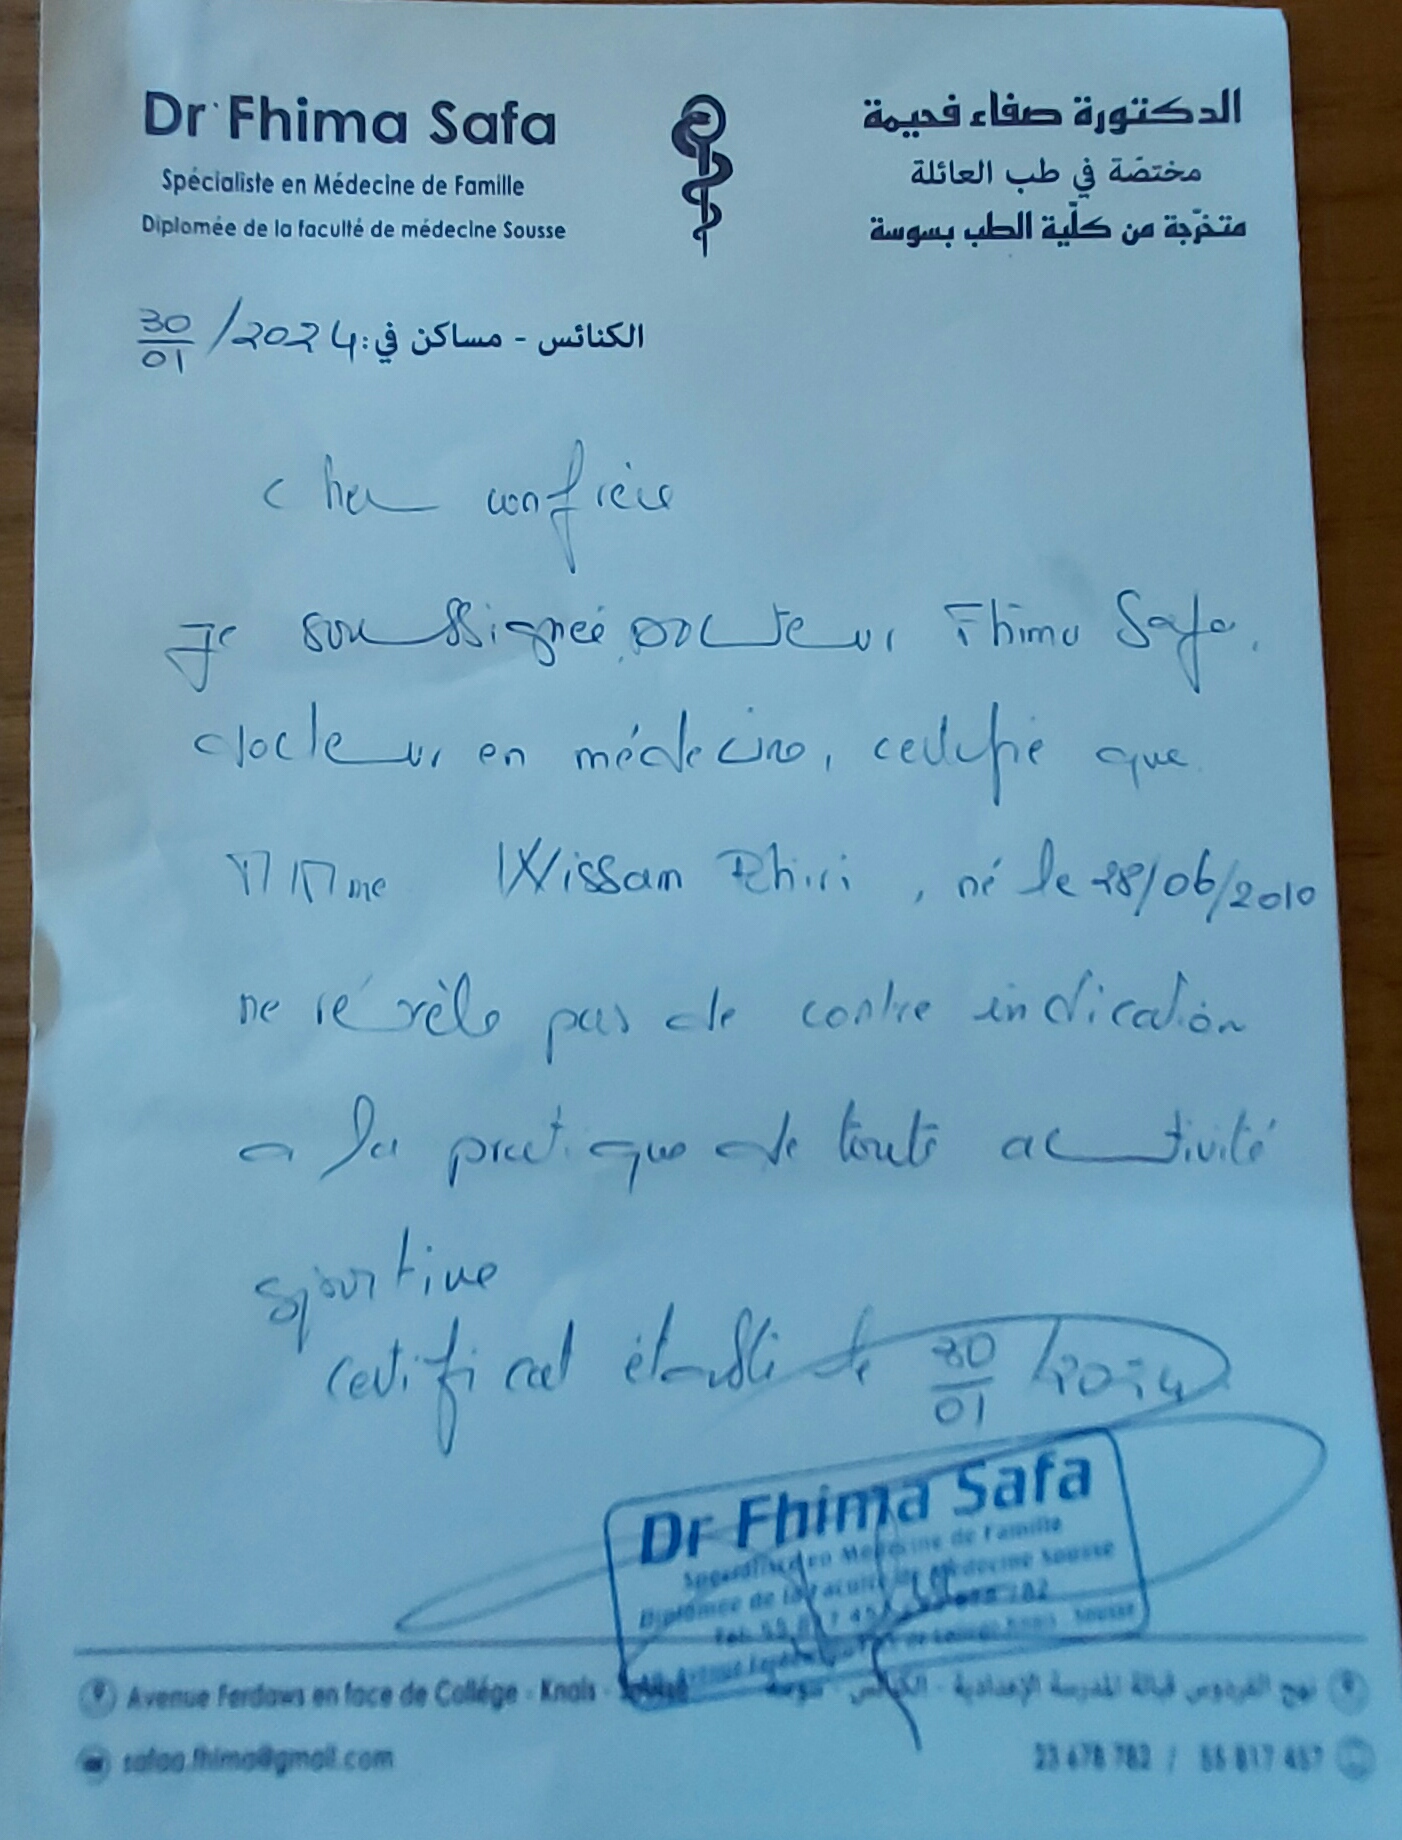 Dr Fhima Safa
Spécialiste en Médecine de Famille
Diplomée de la faculté de médecine Sousse
الدكتورة صفاء فحيمة
مختصّة في طب العائلة
متخرّجة من كلّية الطب بسوسة
الكنائس - مساكن في: 30/01/2024
Cher confrère
Je soussignée, Docteur Fhima Safa,
docteur en médecine, certifie que
Wissam, né le 28/06/2010
ne révèle pas de contre indication
a la pratique de toute activité
sportive
certificat établi le 30/01/2024
Dr Fhima Safa
Spécialiste en Médecine de Famille
Diplômée de la Faculté de Médecine Sousse
Avenue Ferdaws en face de Collége - Knais -
نهج الفردوس قبالة المدرسة الإعدادية - الكنائس - سوسة
safaa.fhima@gmail.com
23 678 782 / 55 817 457